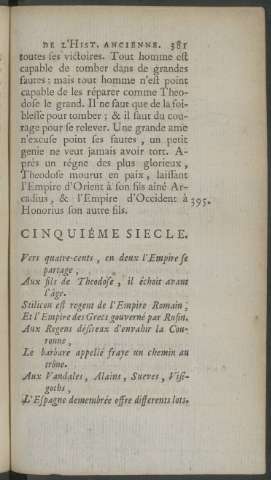 DE L'HIST. ANCIENNE. 381
toutes ses victoires. Tout homme est
capable de tomber dans de grandes
fautes ; mais tout homme n'est point
capable de les réparer comme Theo-
dose le grand. Il ne faut que de la foi-
blesse pour tomber ; & il faut du cou-
rage pour se relever. Une grande ame
n'excuse point ses fautes, un petit
genie ne veut jamais avoir tort. A-
près un régne des plus glorieux,
Theodose mourut en paix, laissant
l'Empire d'Orient à son fils aîné Ar-
cadius, & l'Empire d'Occident à 395.
Honorius son autre fils.
CINQUIÉME SIECLE.
Vers quatre-cents, en deux l'Empire se
partage ;
Aux fils de Theodose, il échoit avant
l'âge.
Stilicon est regent de l'Empire Romain ;
Et l'Empire des Grecs gouverné par Rufin.
Aux Regens désireux d'envahir la Cou-
ronne,
Le barbare appellé fraye un chemin au
trône.
Aux Vandales, Alains, Sueves, Visi-
gochs,
L'Espagne demembrée offre differents lots.